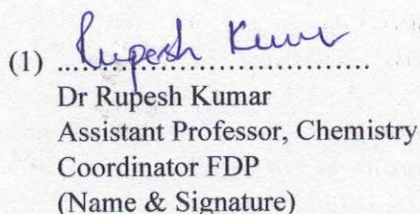 (1) Rupesh Kumar
Dr Rupesh Kumar
Assistant Professor, Chemistry
Coordinator FDP
(Name & Signature)